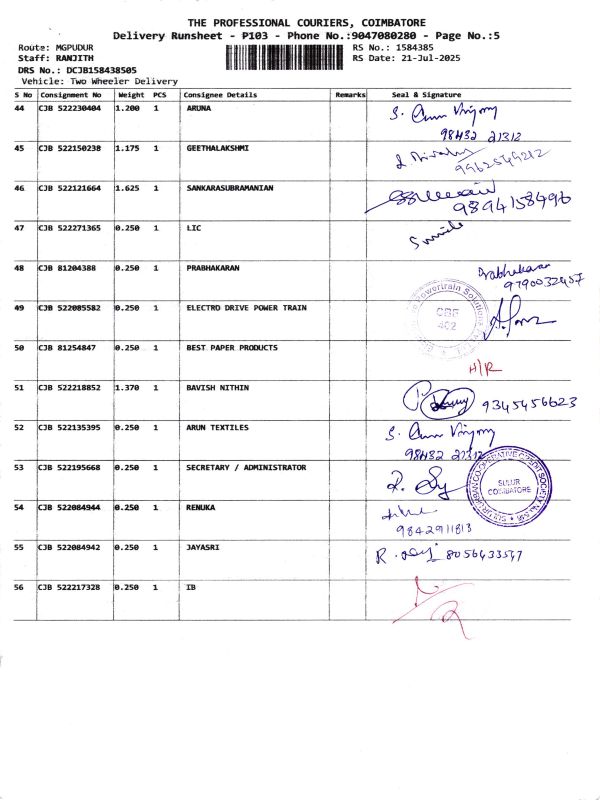 THE PROFESSIONAL COURIERS, COIMBATORE
Delivery Runsheet - P103 - Phone No.:9047080280 - Page No.:5
Route: MGPUDUR
RS No.: 1584385
Staff: RANJITH
RS Date: 21-Jul-2025
DRS No.: DCJB158438505
Vehicle: Two Wheeler Delivery
S No Consignment No Weight PCS Consignee Details Remarks Seal & Signature
44 CJB 522230404 1.200 1 ARUNA
98432 21312
45 CJB 522150238 1.175 1 GEETHALAKSHMI
9962549212
46 CJB 522121664 1.625 1 SANKARASUBRAMANIAN
9894158496
47 CJB 522271365 0.250 1 LIC
48 CJB 81204388 0.250 1 PRABHAKARAN Prabhakaran
9790032457
49 CJB 522085582 0.250 1 ELECTRO DRIVE POWER TRAIN
Powertrain Solutions
CBE
402
50 CJB 81254847 0.250 1 BEST PAPER PRODUCTS H/R
51 CJB 522218852 1.370 1 BAVISH NITHIN 9345456623
52 CJB 522135395 0.250 1 ARUN TEXTILES
98432 21312
53 CJB 522195668 0.250 1 SECRETARY / ADMINISTRATOR
SULUR
COIMBATORE
54 CJB 522084944 0.250 1 RENUKA
9842911813
55 CJB 522084942 0.250 1 JAYASRI 8056433547
56 CJB 522217328 0.250 1 IB